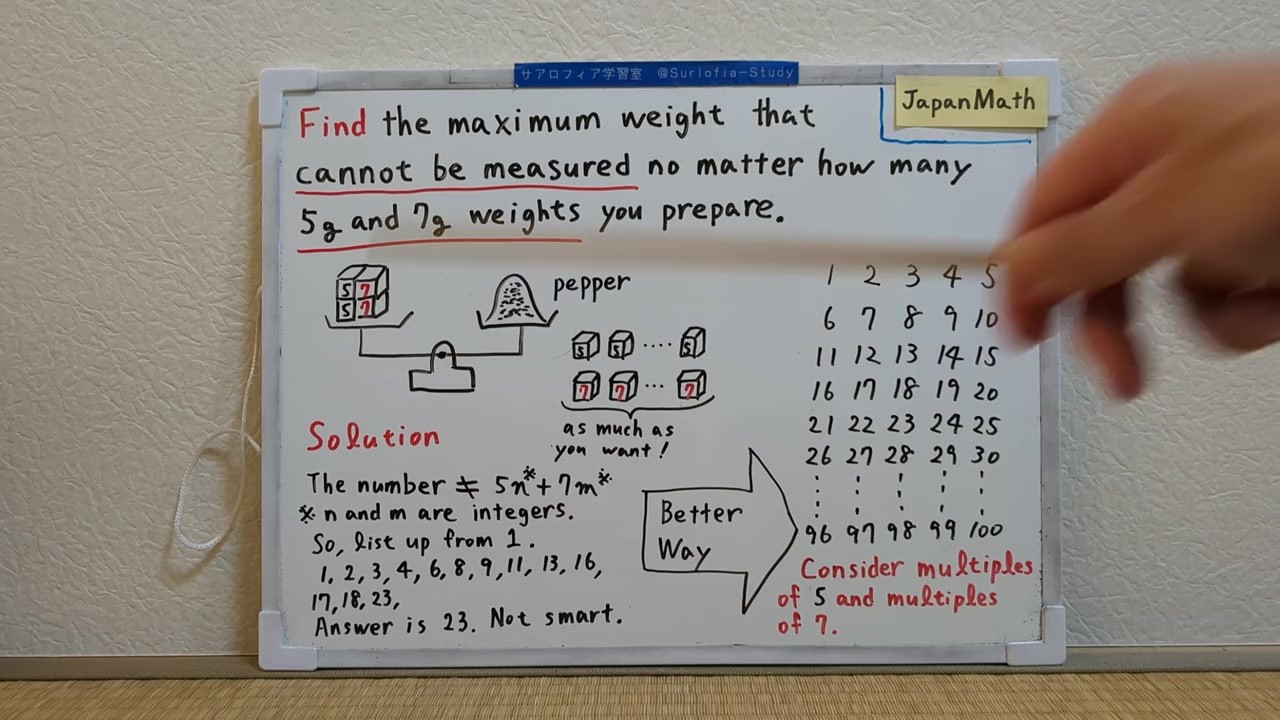 サアロフィア学習室 @Surlofia-Study
JapanMath
Find the maximum weight that
cannot be measured no matter how many
5g and 7g weights you prepare.
5 7
5 7
pepper
5 5 ‥‥ 5
7 7 … 7
as much as
you want!
1 2 3 4 5
6 7 8 9 10
11 12 13 14 15
16 17 18 19 20
21 22 23 24 25
26 27 28 29 30
⋮ ⋮ ⋮ ⋮ ⋮
96 97 98 99 100
Solution
The number ≠ 5n※+7m※
※ n and m are integers.
So, list up from 1.
1, 2, 3, 4, 6, 8, 9, 11, 13, 16,
17, 18, 23,
Answer is 23. Not smart.
Better
Way
Consider multiples
of 5 and multiples
of 7.